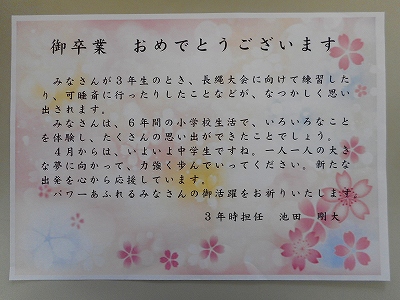 御卒業　おめでとうございます
みなさんが３年生のとき、長縄大会に向けて練習した
り、可睡斎に行ったりしたことなどが、なつかしく思い
出されます。
みなさんは、６年間の小学校生活で、いろいろなこと
を体験し、たくさんの思い出ができたことでしょう。
４月からは、いよいよ中学生ですね。一人一人の大き
な夢に向かって、力強く歩んでいってください。新たな
出発を心から応援しています。
パワーあふれるみなさんの御活躍をお祈りいたします。
３年時担任　池田　剛大